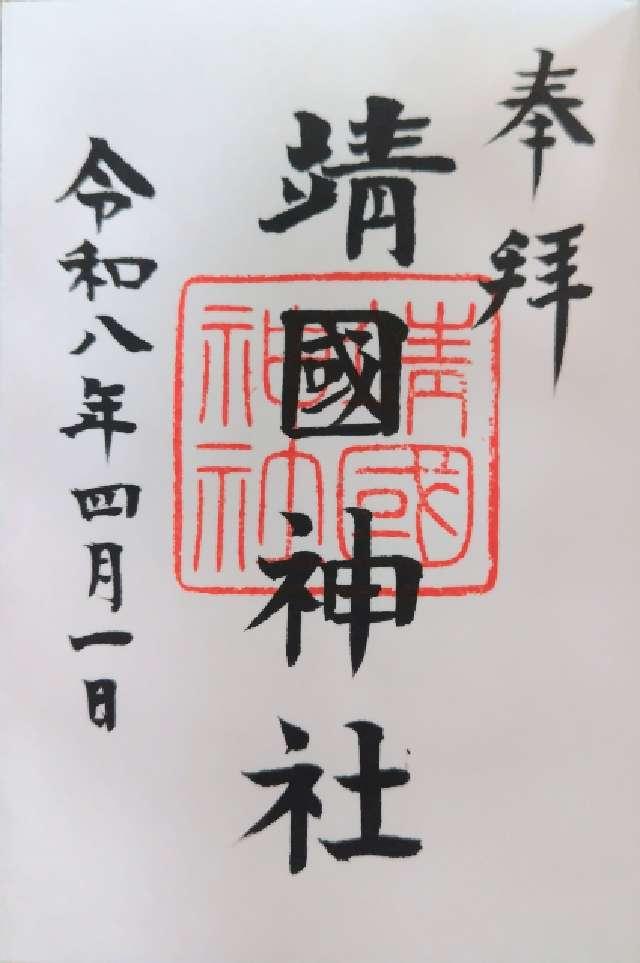 奉拝
靖國神社
靖國神社
令和八年四月一日